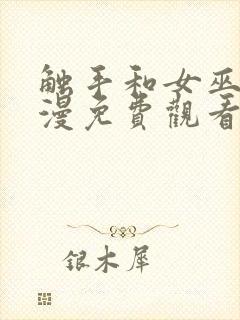 触手和女巫
漫免費觀看
银木犀